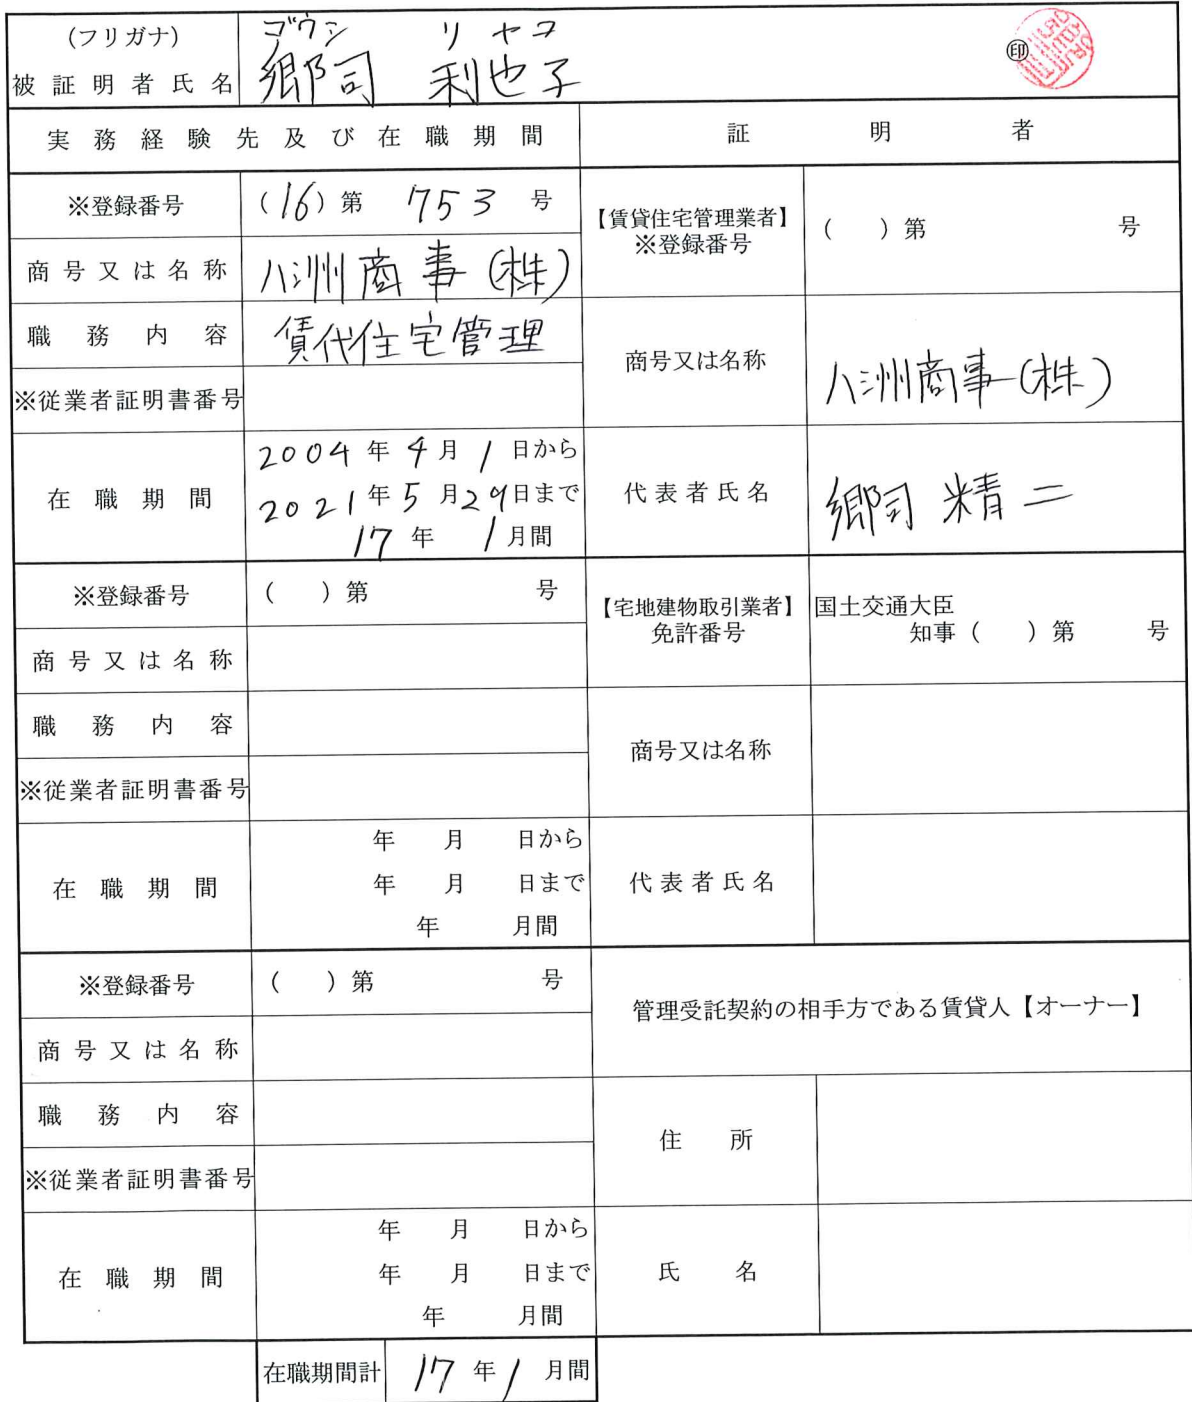 (フリガナ) ゴウシ リヤコ
被証明者氏名 郷司 利也子 ㊞
実務経験先及び在職期間 証明者
※登録番号 (16)第 753 号
【賃貸住宅管理業者】
※登録番号
( )第 号
商号又は名称 八洲商事(株)
職務内容 賃代住宅管理
商号又は名称 八洲商事(株)
※従業者証明書番号
在職期間
2004年4月1日から
2021年5月29日まで
17年 1月間
代表者氏名 郷司 精二
※登録番号 ( )第 号
【宅地建物取引業者】
免許番号
国土交通大臣
知事( )第 号
商号又は名称
職務内容
商号又は名称
※従業者証明書番号
在職期間
年 月 日から
年 月 日まで
年 月間
代表者氏名
※登録番号 ( )第 号
管理受託契約の相手方である賃貸人【オーナー】
商号又は名称
職務内容
住所
※従業者証明書番号
在職期間
年 月 日から
年 月 日まで
年 月間
氏名
在職期間計 17年1月間